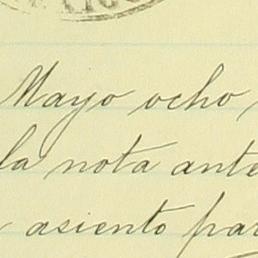 Mayo ocho
la nota ante
asiento par